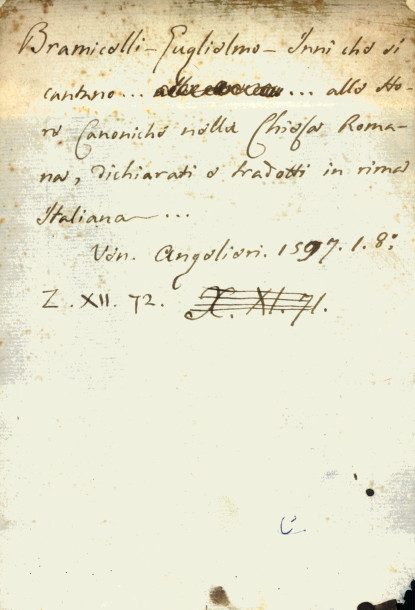 Bramicelli - Guglielmo - Inni che si
cantano ... ... alle Ho-
re Canoniche nella Chiesa Roma-
na, dichiarati e tradotti in rima
Italiana ...
Ven. Angelieri. 1597. 1. 8.º
Z. XII. 72. X. XI. 71.
C